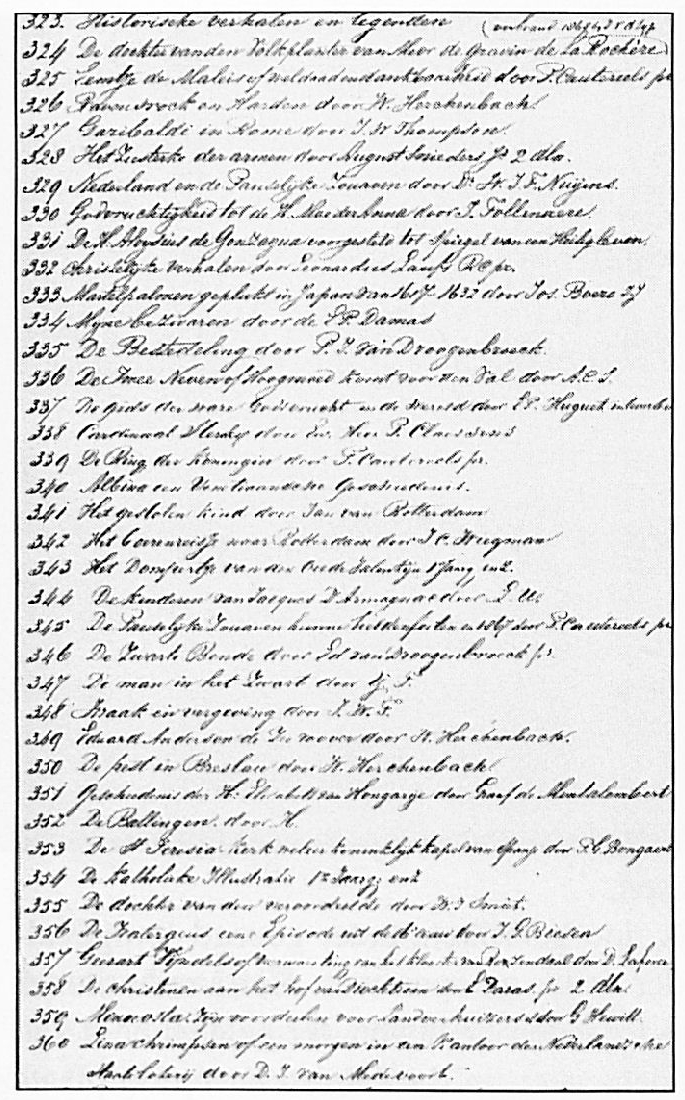 323. Historische verhalen en legenden
324 De dochter van den Volkplanter van Meer de gravin de La Rochère
325 of weldaad en dankbaarheid door P. Cautereels pr
326 en Harden door W. Herchenbach
327 Garibaldi in Rome door J. W Thompson.
328 Het Zusterke der armen door August Snieders Jr 2 dln.
329 Nederland en de Pauselijke Zouaven door Dr W. J. F. Nuijens.
330 Godvruchtigheid tot de H. Moeder Anna door J. Follenaere.
331 De H. Aloysius de Gonzaga voorgesteld tot spiegel van een Heilig leven
332 Christelijke verhalen door Leonardus
333 Martelpalmen geplukt in Japan van 1617-1632 door Jos. Boero SJ
334 Mijne bezwaren door de P. Damas
335 De Besteedeling door P. J. Van Droogenbroeck.
336 De Twee Neven of Hoogmoed komt voor den Val door A. C. S.
337 De gids der ware in de wereld door Huguet
338 Cardinaal door Eerw. Heer P. Claessens
339 De Ring der Koningin door P. Cautereels pr.
340 Albina een Venetiaansche Geschiedenis.
341 Het gestolen kind door Jan van Rotterdam
342 Het naar Rotterdam door J. C. Wiegman
343 Het van den Oude Valentijn 1 Jaarg en 2.
344 De kinderen van Jacques D'Armagnac door
345 De Pauselijke Zouaven hunne heldenfeiten en 1867 door P. Cautereels pr
346 De Zwarte Bende door Ed van Droogenbroeck pr.
347 De man in het Zwart door F.
348 Wraak en vergeving door J. W. F.
349 Eduard Anderson de Zeeroover door W. Herchenbach.
350 De pest in Breslau door W. Herchenbach
351 Geschiedenis der H. Elisabeth van Hongarije door Graaf de Montalembert
352 De Bellingen. door H.
353 De St Teresia Kerk Koninklijk kapel van door
354 De Katholieke Illustratie 1e Jaarg en 2
355 De dochter van den veroordeelde door Smiet.
356 eene Episode uit de door J. G. Biesen
357 Geeraart of van het klooster van Rozendaal door D.
358 De Christinen aan het hof van Diocletiaan door pr 2 dln
359 zijn voordeelen voor Landverhuizers door G. Hewitt.
360 Lina of een morgen in een Kantoor der Nederlandsche
Staatsloterij door D. J. van